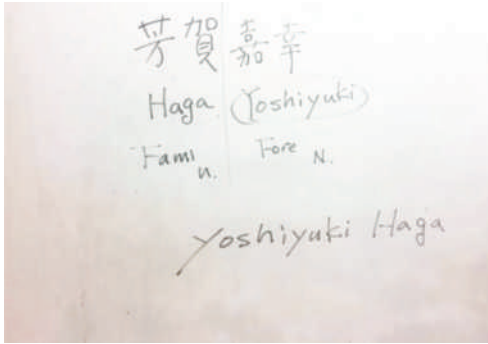 芳賀嘉幸
Haga (Yoshiyuki)
Fami n. Fore N.
Yoshiyuki Haga